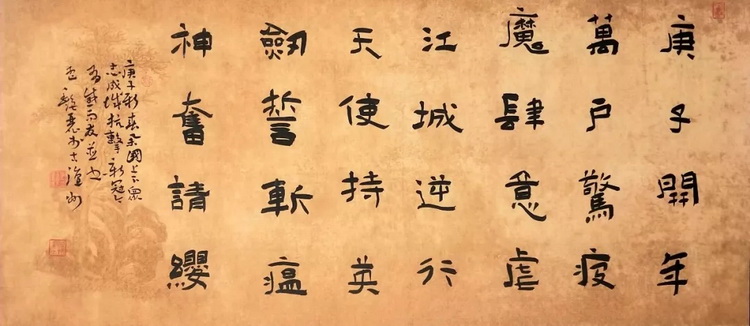 庚子開年
萬戶驚疫
魔肆意虐
江城逆行
天使持英
劒誓斬瘟
神奮請纓
庚子新春全國上下眾
志成城抗擊新冠